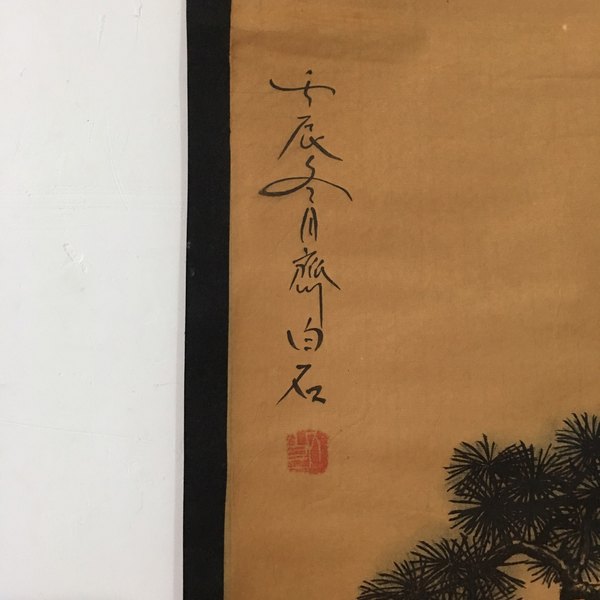 壬辰冬月齊白石